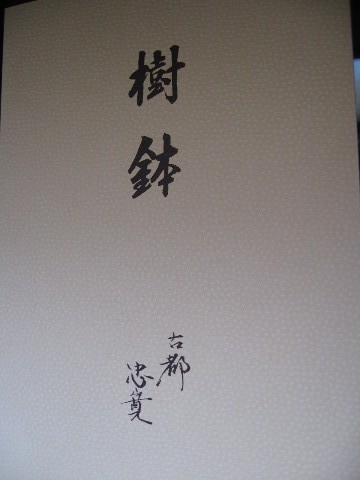 樹鉢
古都
忠寛